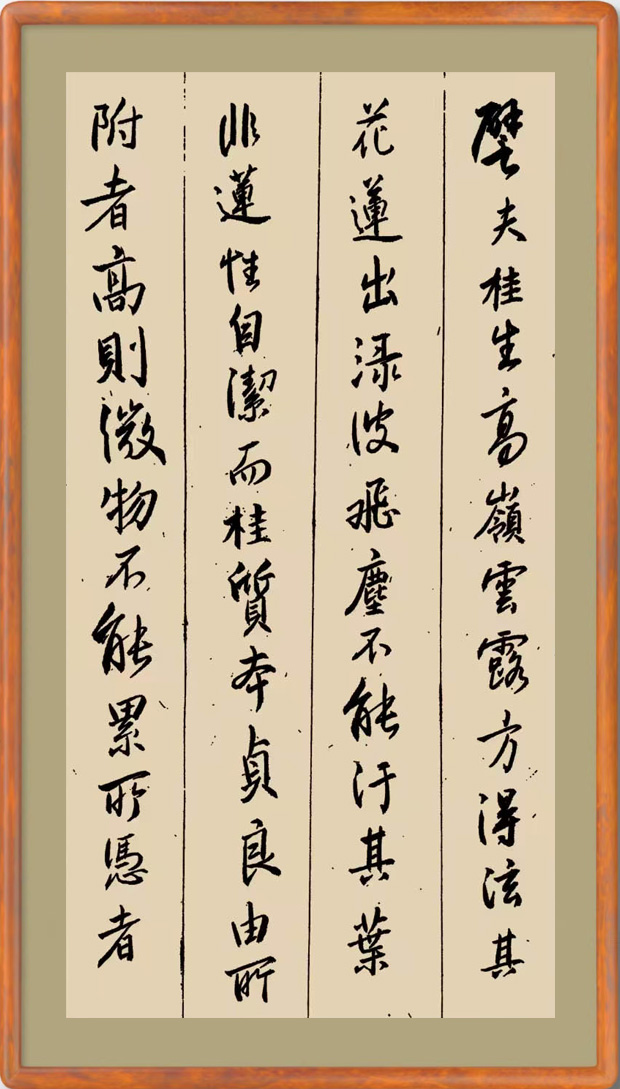 譬夫桂生高嶺雲露方得泫其
花蓮出渌波飛塵不能汙其葉
非蓮性自潔而桂質本貞良由所
附者高則微物不能累所憑者